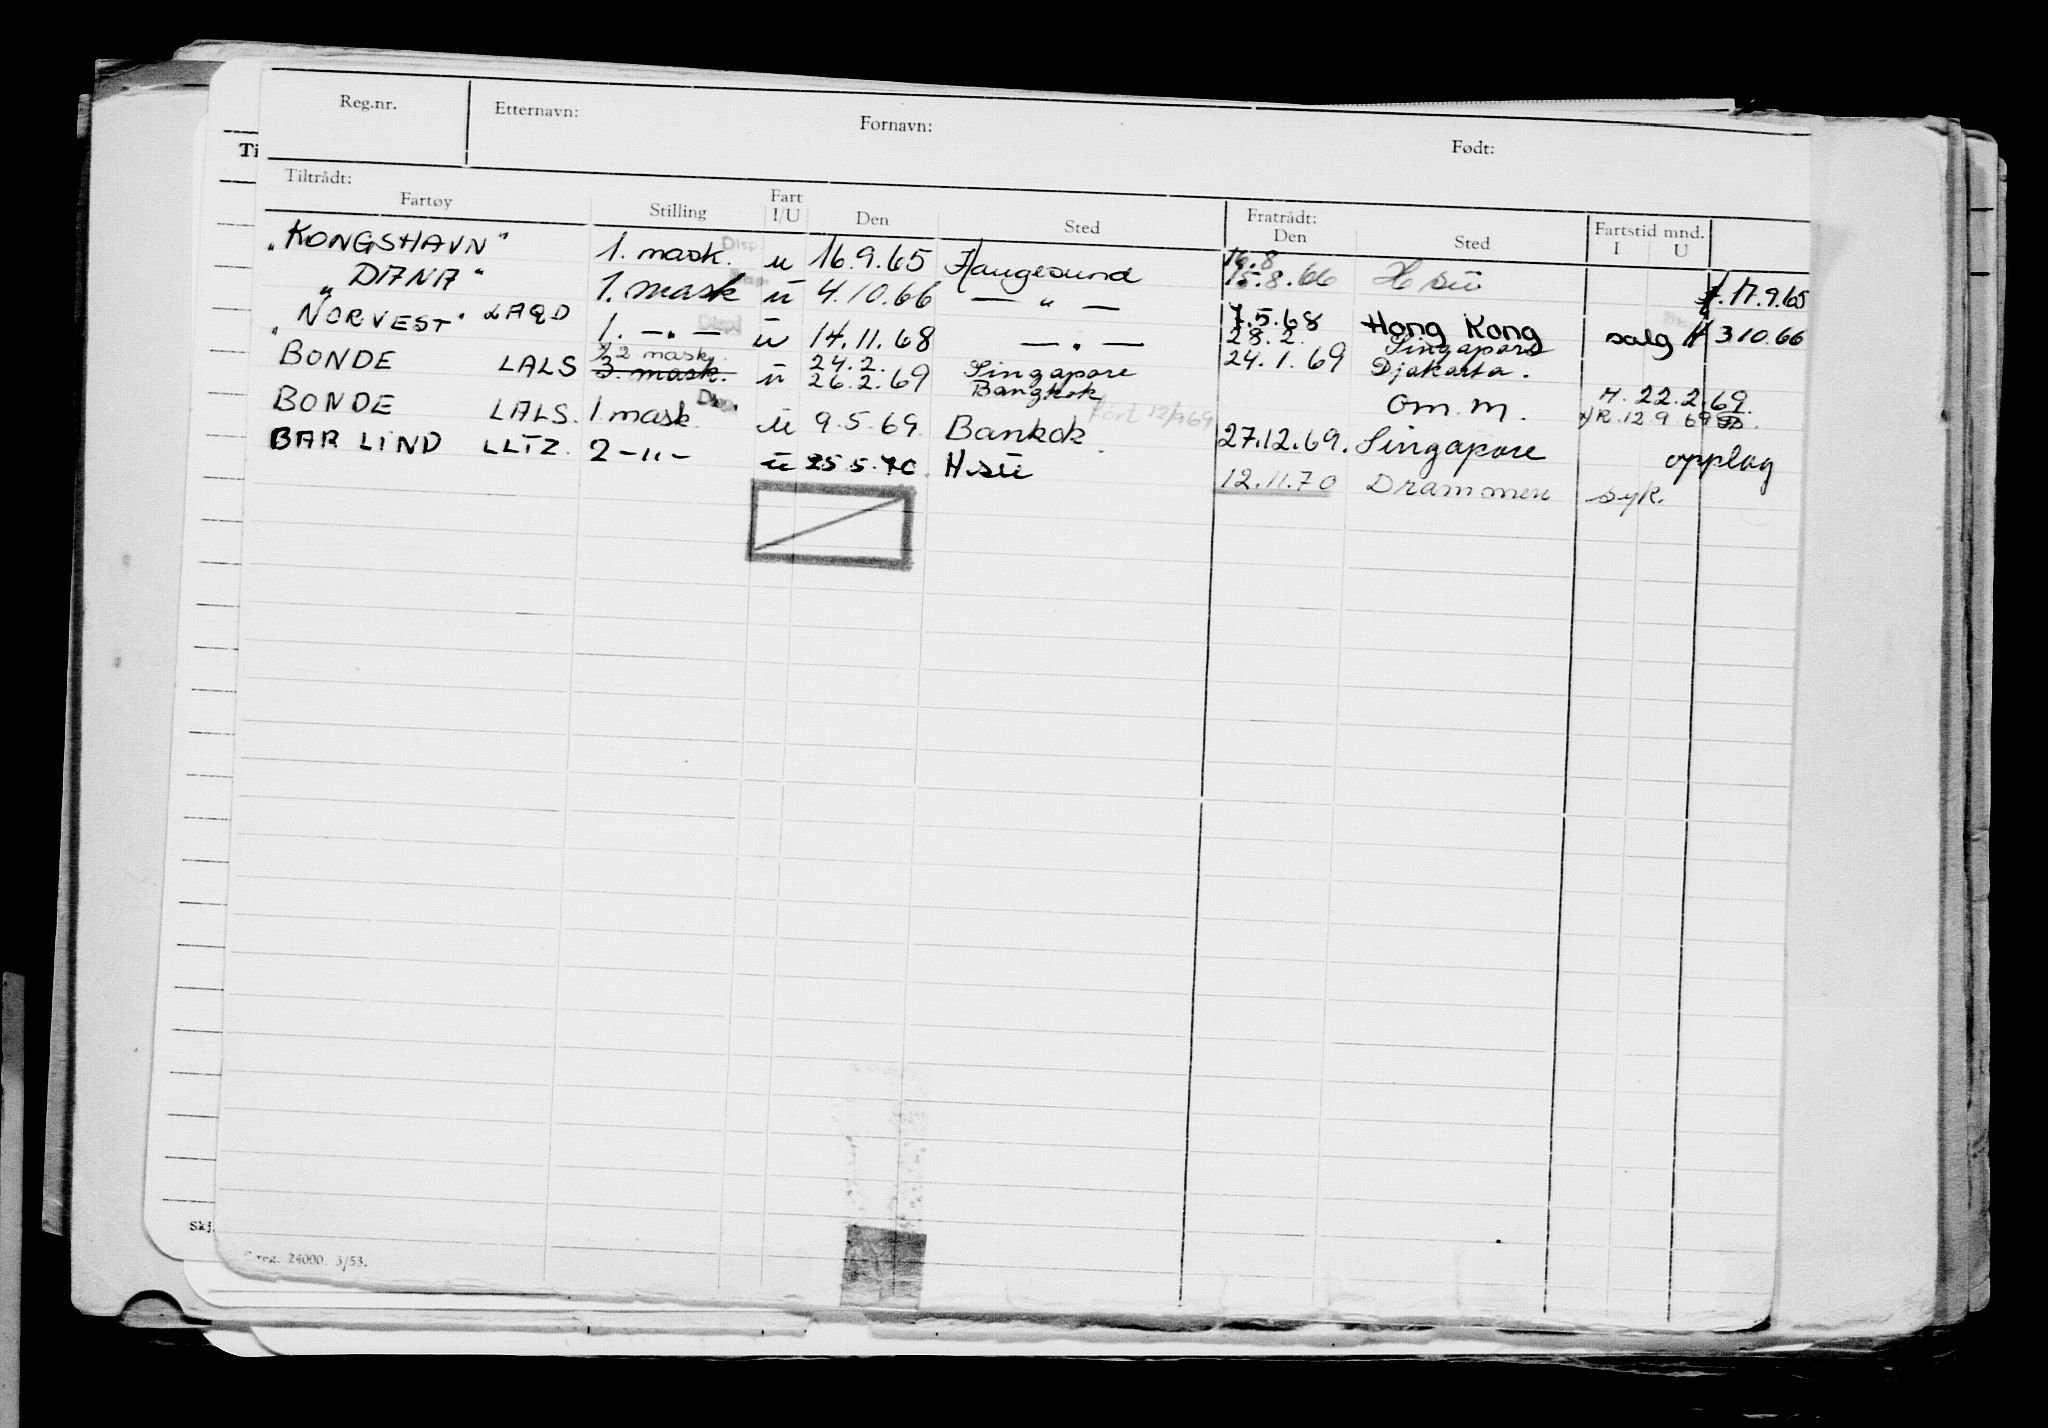 Reg.nr. Etternavn: Fornavn: Født:
Ti
Tiltrådt: Fratrådt:
Fartøy Stilling Fart I/U Den Sted Den Sted Fartstid mnd. I U
"KONGSHAVN" 1. mask. Disp. u 16.9.65 Haugesund 16.8 15.8.66 H su 17.9.65
"DIANA" 1. mask ü 4.10.66 — " — 7.5.68 Hong Kong salg H 310.66
"NORVEST" LAQD 1. — " — Disp. ü 14.11.68 — " — 28.2. Singapore
24.1.69 Djakarta.
BONDE LALS 2 mask. 3. mask. ü 24.2. Singapore
26.2.69 Bangkok om.m. H. 22.2.69.
BONDE LALS. 1. mask Disp. ü 9.5.69. Bankok 27.12.69. Singapore opplag R. 12.9 69
BAR LIND LLTZ. 2 -"- ü 25.5.70. H.sü 12.11.70 Drammen syk.
Skj.
reg. 24000. 3/53.